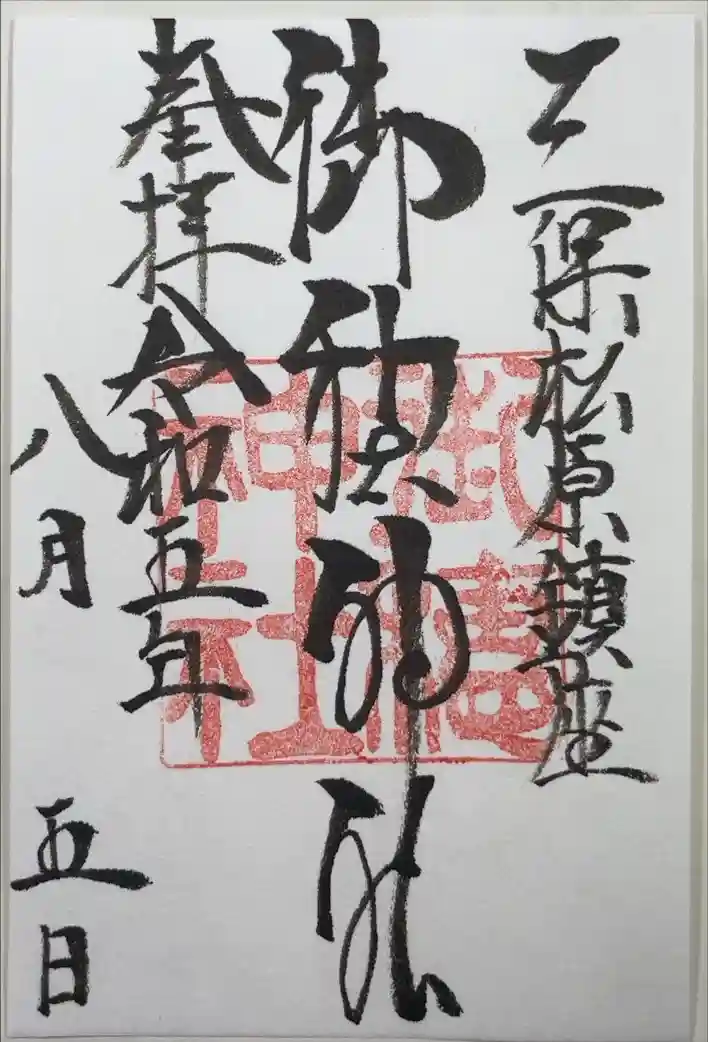 三保松原鎮座
御穂神社
奉拝 令和五年
八月 五日
御穗
神社